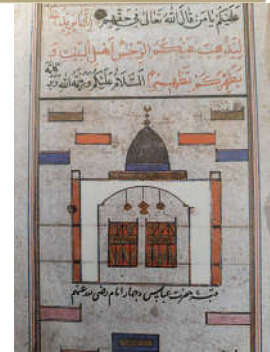 عليكم يا من قال الله تعالى في حقهم انما يريد الله
ليذهب عنكم الرجس اهل البيت و
يطهركم تطهيرا السلام عليكم ورحمة الله
حضرت عباس و چهار امام رضى الله عنهم